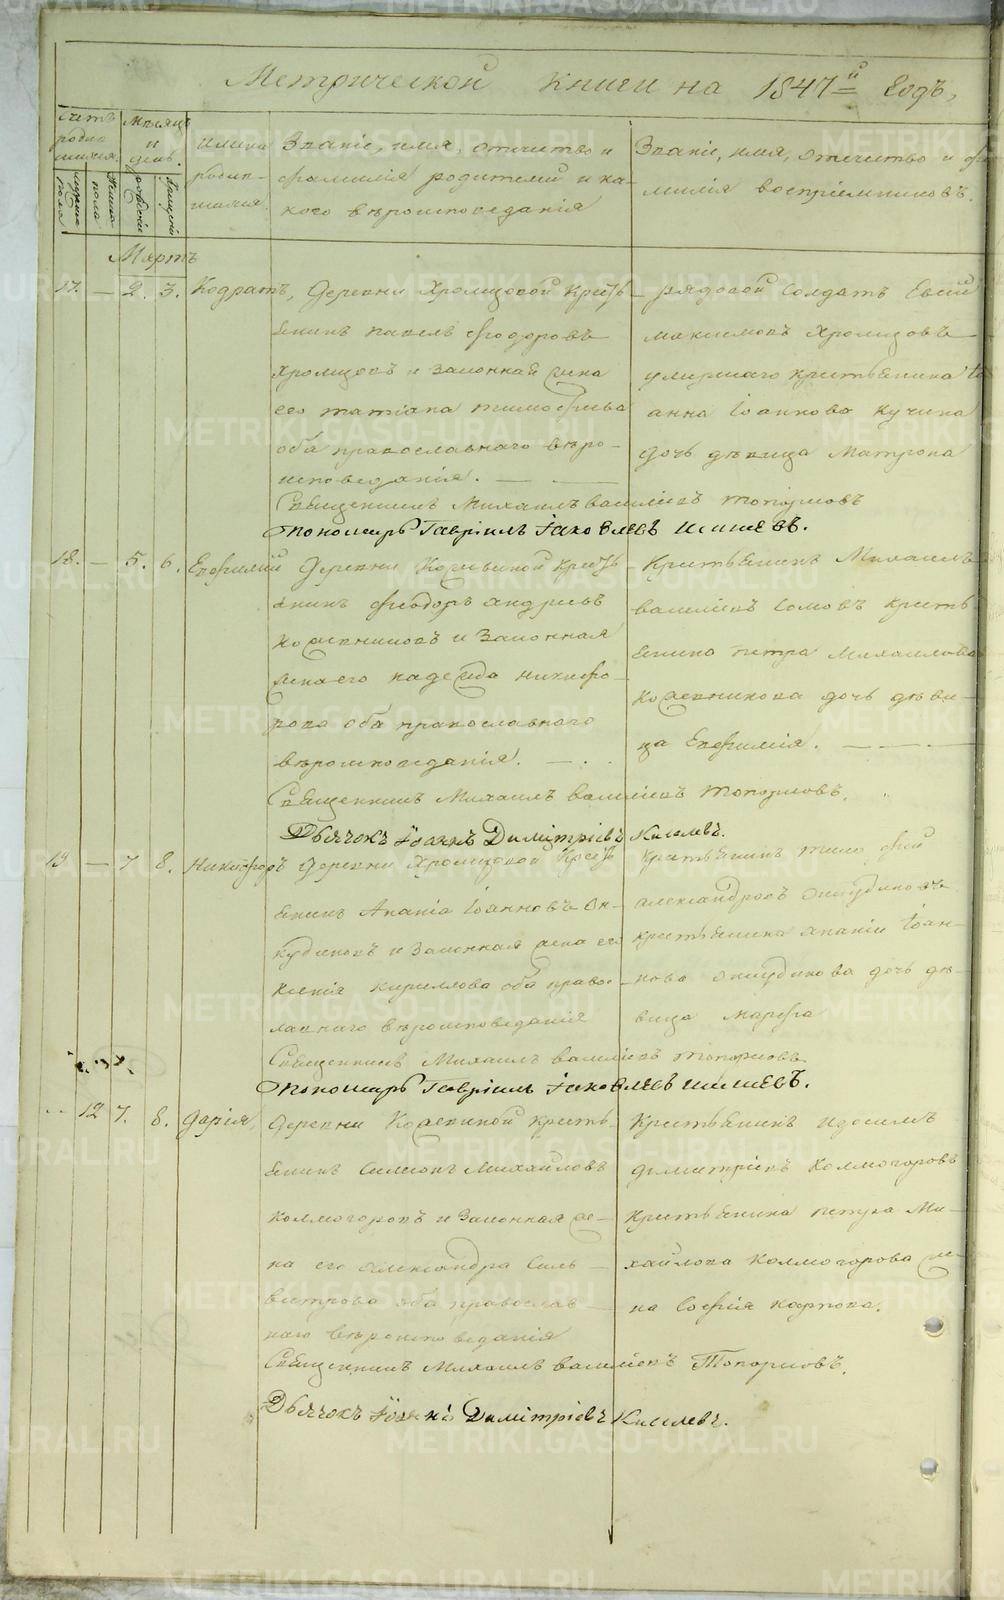 Метрической Книги на 1847й Годъ,
Счетъ родившихся.
мужеска пола
женска пола
Мѣсяцъ и день.
рожденія
крещенія
имена родившихся
Званіе, имя, отчество и фамилія родителей и какого вѣроисповеданія
Званіе, имя, отчество и фамилія воспріемниковъ.
Мартъ
17. — 2. 3. Кодратъ,
Деревни Хромцовой кресть
янинъ Павелъ Феодоровъ
Хромцовъ и Законная жена
его Татіана Тимофеева
оба православнаго вѣро-
исповеданія. — —
рядовой Солдатъ Евсей
Максимовъ Хромцовъ
умершаго крестьянина Іо
анна Іоаннова Кучина
дочь дѣвица Матрона
Священникъ Михаилъ Васильевъ Топорковъ
Пономарь Гавріилъ Іаковлевъ Шишевъ.
18. — 5. 6. Евфимій
Деревни Косьвиной кресть
янинъ Феодоръ Андреевъ
Кожевниковъ и Законная
жена его Надежда Никифо-
рова оба православнаго
вѣроисповеданія. — . .
Крестьянинъ Михаилъ
Васильевъ Сомовъ кресть
янина Петра Михаилова
Кожевникова дочь дѣви-
ца Евфимія. — — —
Священникъ Михаилъ Васильевъ Топорковъ.
Дьячокъ Іоаннъ Димитріевъ Киселевъ.
19 — 7 8. Никифоръ
Деревни Хромцовой Кресть
янинъ Ананіа Іоанновъ Ан-
кудиновъ и Законная жена его
Ксенія Кириллова оба право-
славнаго вѣроисповеданія
Крестьянинъ Тимофей
Александровъ Анкудиновъ
крестьянина Ананіи Іоан-
нова Анкудинова дочь дѣ-
вица Марфа
Священникъ Михаилъ Васильевъ Топорковъ
Пономарь Гавріилъ Іаковлевъ Шишевъ.
— 12 7. 8. Дарія,
Деревни Кожевиной кресть-
янинъ Симеонъ Михайловъ
Колмогоровъ и Законная же-
на его Александра Силь-
вестрова оба православ-
наго вѣроисповеданія
Крестьянинъ
Димитріевъ Колмогоровъ
Крестьянина Петра Ми-
хайлова Колмогорова же-
на Софія Карпова.
Священникъ Михаилъ Васильевъ Топорковъ.
Дьячокъ Іоаннъ Димитріевъ Киселевъ.
METRIKI.GASO-URAL.RU